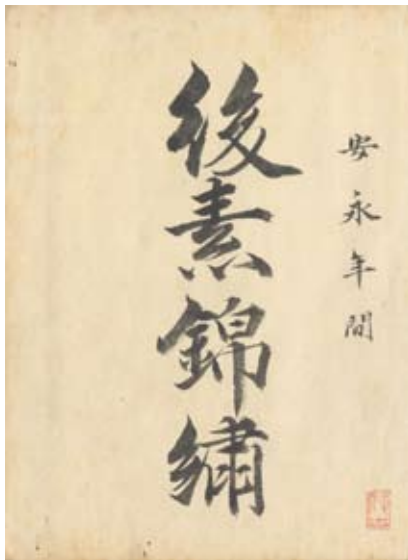 安永年間
後素錦繡